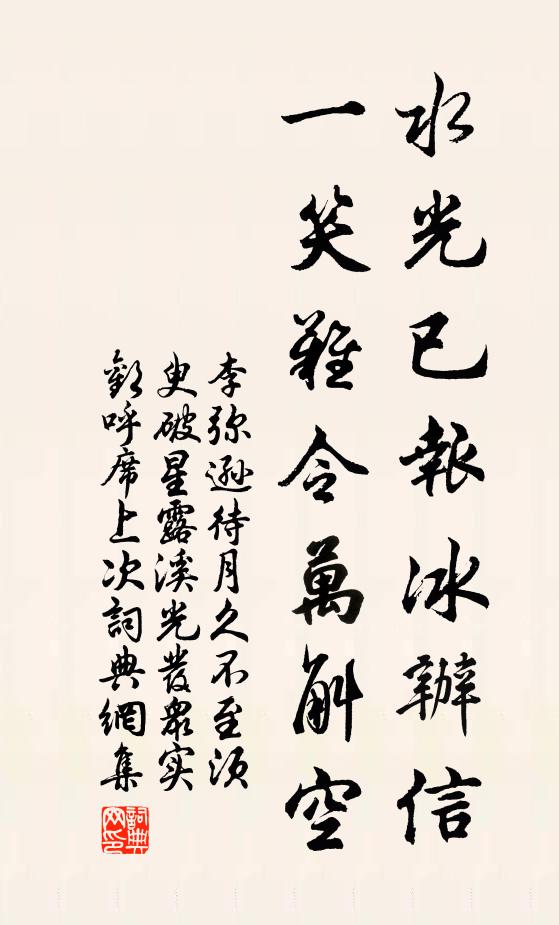 水光已報冰辦信
一笑難令萬斛空
李弥遜待月久不至須
臾破星露溪光發眾实
歡呼席上次詞典網集
詞典网印